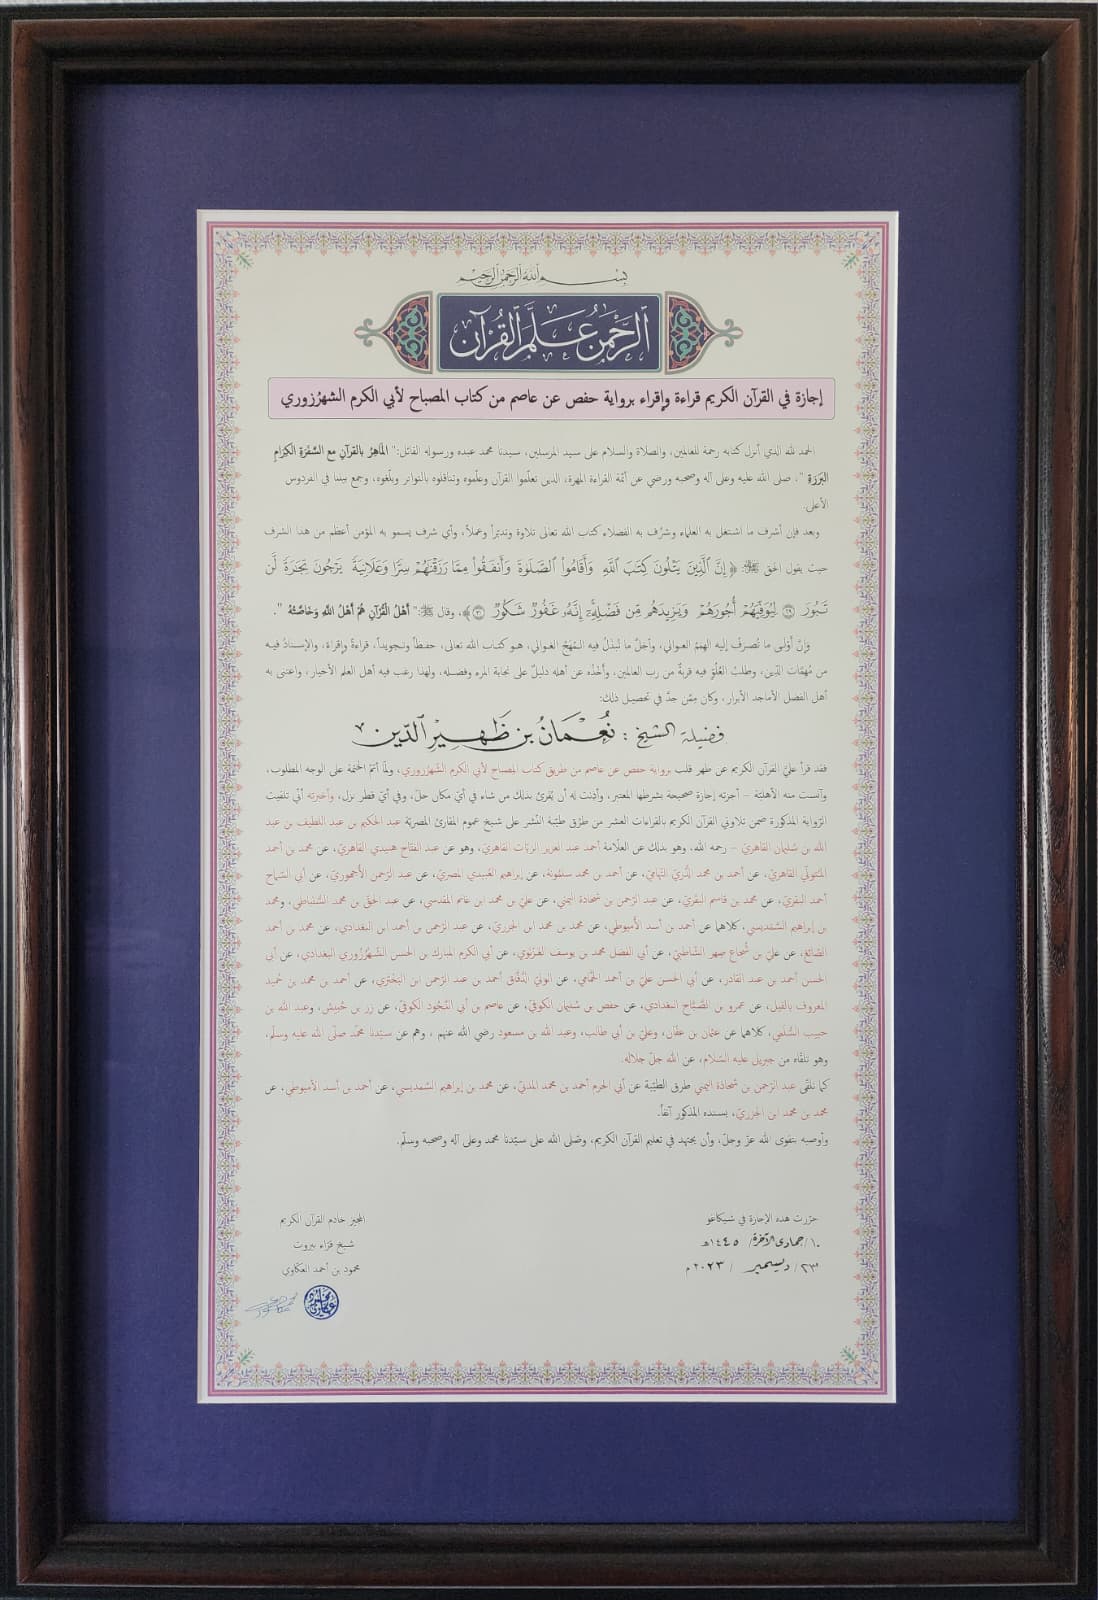 بسم الله الرحمن الرحيم
الرحمن علم القرآن
إجازة في القرآن الكريم قراءة وإقراء برواية حفص عن عاصم من كتاب المصباح لأبي الكرم الشهرُزوري
الحمد لله الذي أنزل كتابه رحمة للعالمين، والصلاة والسلام على سيد المرسلين، سيدنا محمد عبده ورسوله القائل:" الماهِرُ بالقرآنِ مع السَّفَرَةِ الكِرَامِ
البَرَرَةِ "، صلى الله عليه وعلى آله وصحبه ورضي عن أئمّة القراءة المهرة، الذين تعلّموا القرآن وعلّموه وتناقلوه بالتواتر وبلّغوه، وجمع بيننا في الفردوس
الأعلى.
وبعد فإن أشرف ما اشتغل به العلماء وشرُف به الفضلاء كتاب الله تعالى تلاوة وتدبّراً وعملاً، وأي شرف يسمو به المؤمن أعظم من هذا الشرف
حيث يقول الحق ﷻ: ﴿ إِنَّ ٱلَّذِينَ يَتْلُونَ كِتَٰبَ ٱللَّهِ وَأَقَامُوا۟ ٱلصَّلَوٰةَ وَأَنفَقُوا۟ مِمَّا رَزَقْنَٰهُمْ سِرًّا وَعَلَانِيَةً يَرْجُونَ تِجَٰرَةً لَّن
تَبُورَ ٢٩ لِيُوَفِّيَهُمْ أُجُورَهُمْ وَيَزِيدَهُم مِّن فَضْلِهِۦٓ إِنَّهُۥ غَفُورٌ شَكُورٌ ٣٠ ﴾، وقال ﷺ:" أَهْلُ الْقُرْآنِ هُمْ أَهْلُ اللَّهِ وَخَاصَّتُهُ ".
وَإنَّ أَوْلى ما تُصرفُ إليه الهِمَمُ العوالي، وأجَلَّ ما تُبذلُ فيه المُهَجُ الغوالي، هو كتاب الله تعالى، حفظاً وتجويداً، قراءةً وإقراءً، والإسنادُ فيه
من مُهمّات الدّين، وطلبُ العُلُوّ فيه قربةٌ من رب العالمين، وأَخْذُه عن أهله دليلٌ على نجابة المرء وفضله، ولهذا رغب فيه أهل العلم الأخيار، واعتنى به
أهل الفضل الأماجد الأبرار، وكان مِمّن جدَّ في تحصيل ذلك:
فضيلة الشيخ : نُعْمَانُ بن ظَهِيرِ الدّين
فقد قرأ عليَّ القرآن الكريم عن ظهر قلب برواية حفص عن عاصم من طريق كتاب المصباح لأبي الكرم الشهرُزوري، ولمّا أتمّ الختمة على الوجه المطلوب،
وآنست منه الأهليّة – أجزته إجازة صحيحة بشرطها المعتبر، وأذنت له أن يُقرئ بذلك من شاء في أيّ مكان حلّ، وفي أيّ قطر نزل، وأخبرته أنّي تلقيت
الرّواية المذكورة ضمن تلاوتي القرآن الكريم بالقراءات العشر من طرُق طيّبة النّشر على شيخ عموم المقارئ المصريّة عبد الحكيم بن عبد اللطيف بن عبد
الله بن سُليمان القاهريّ – رحمه الله، وهو بذلك عن العلّامة أحمد عبد العزيز الزيّات القاهريّ، وهو عن عبد الفتّاح هنيدي القاهريّ، عن محمد بن أحمد
المتولّي القاهريّ، عن أحمد بن محمد الدُّرّيّ التِّهاميّ، عن أحمد بن محمد سلمُونة، عن إبراهيم العُبيدي المصريّ، عن عبد الرّحمن الأُجهوريّ، عن أبي السّماح
أحمد البقريّ، عن محمد بن قاسم البقريّ، عن عبد الرّحمن بن شحاذة اليمني، عن عليّ بن محمد ابن غانم المقدسي، عن عبد الحقّ بن محمد السُّنْباطي، ومحمد
بن إبراهيم السَّمَديسي، كلاهما عن أحمد بن أسد الأميوطي، عن محمد بن محمد ابن الجزريّ، عن عبد الرّحمن بن أحمد ابن البغدادي، عن محمد بن أحمد
الصّائغ، عن عليّ بن شُجاع صهر الشّاطبيّ، عن أبي الفضل محمد بن يوسف الغزنوي، عن أبي الكرم المبارك بن الحسن الشّهْرُزُوري البغدادي، عن أبي
الحسن أحمد بن عبد القادر، عن أبي الحسن عليّ بن أحمد الحمّامي، عن الوليّ الدّقّاق أحمد بن عبد الرّحمن ابن البَخْتَري، عن أحمد بن محمد بن حُميد
المعروف بالفيل، عن عمرو بن الصَّبّاح البغدادي، عن حفص بن سُليمان الكوفيّ، عن عاصم بن أبي النَّجُود الكوفيّ، عن زِر بن حُبيش، وعبد الله بن
حبيب السُّلَمي، كلاهما عن عثمان بن عفّان، وعليّ بن أبي طالب، وعبد الله بن مسعود رضي الله عنهم ، وهم عن سيّدنا محمّد صلّى الله عليه وسلّم،
وهو تلقّاه من جبريل عليه السّلام، عن الله جلّ جلاله.
كما تلقّى عبد الرّحمن بن شحاذة اليمني طرق الطيّبة عن أبي الحرم أحمد بن محمد المدنيّ، عن محمد بن إبراهيم السَّمَديسي، عن أحمد بن أسد الأميوطي، عن
محمد بن محمد ابن الجزريّ، بسنده المذكور آنفاً.
وأوصيه بتقوى الله عزّ وجلّ، وأن يجتهد في تعليم القرآن الكريم، وصلى الله على سيّدنا محمد وعلى آله وصحبه وسلّم.
حرّرت هذه الإجازة في شيكاغو
١٠/جمادى الآخرة/ ١٤٤٥هـ
٢٣/ ديسمبر / ٢٠٢٣م
المجيز خادم القرآن الكريم
شيخ قرّاء بيروت
محمود بن أحمد العكاوي